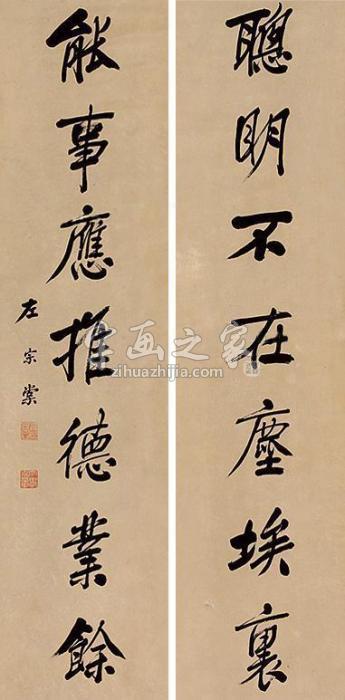 聰明不在塵埃裏
能事應推德業餘
左宗棠
字画之家
zihuazhijia.com